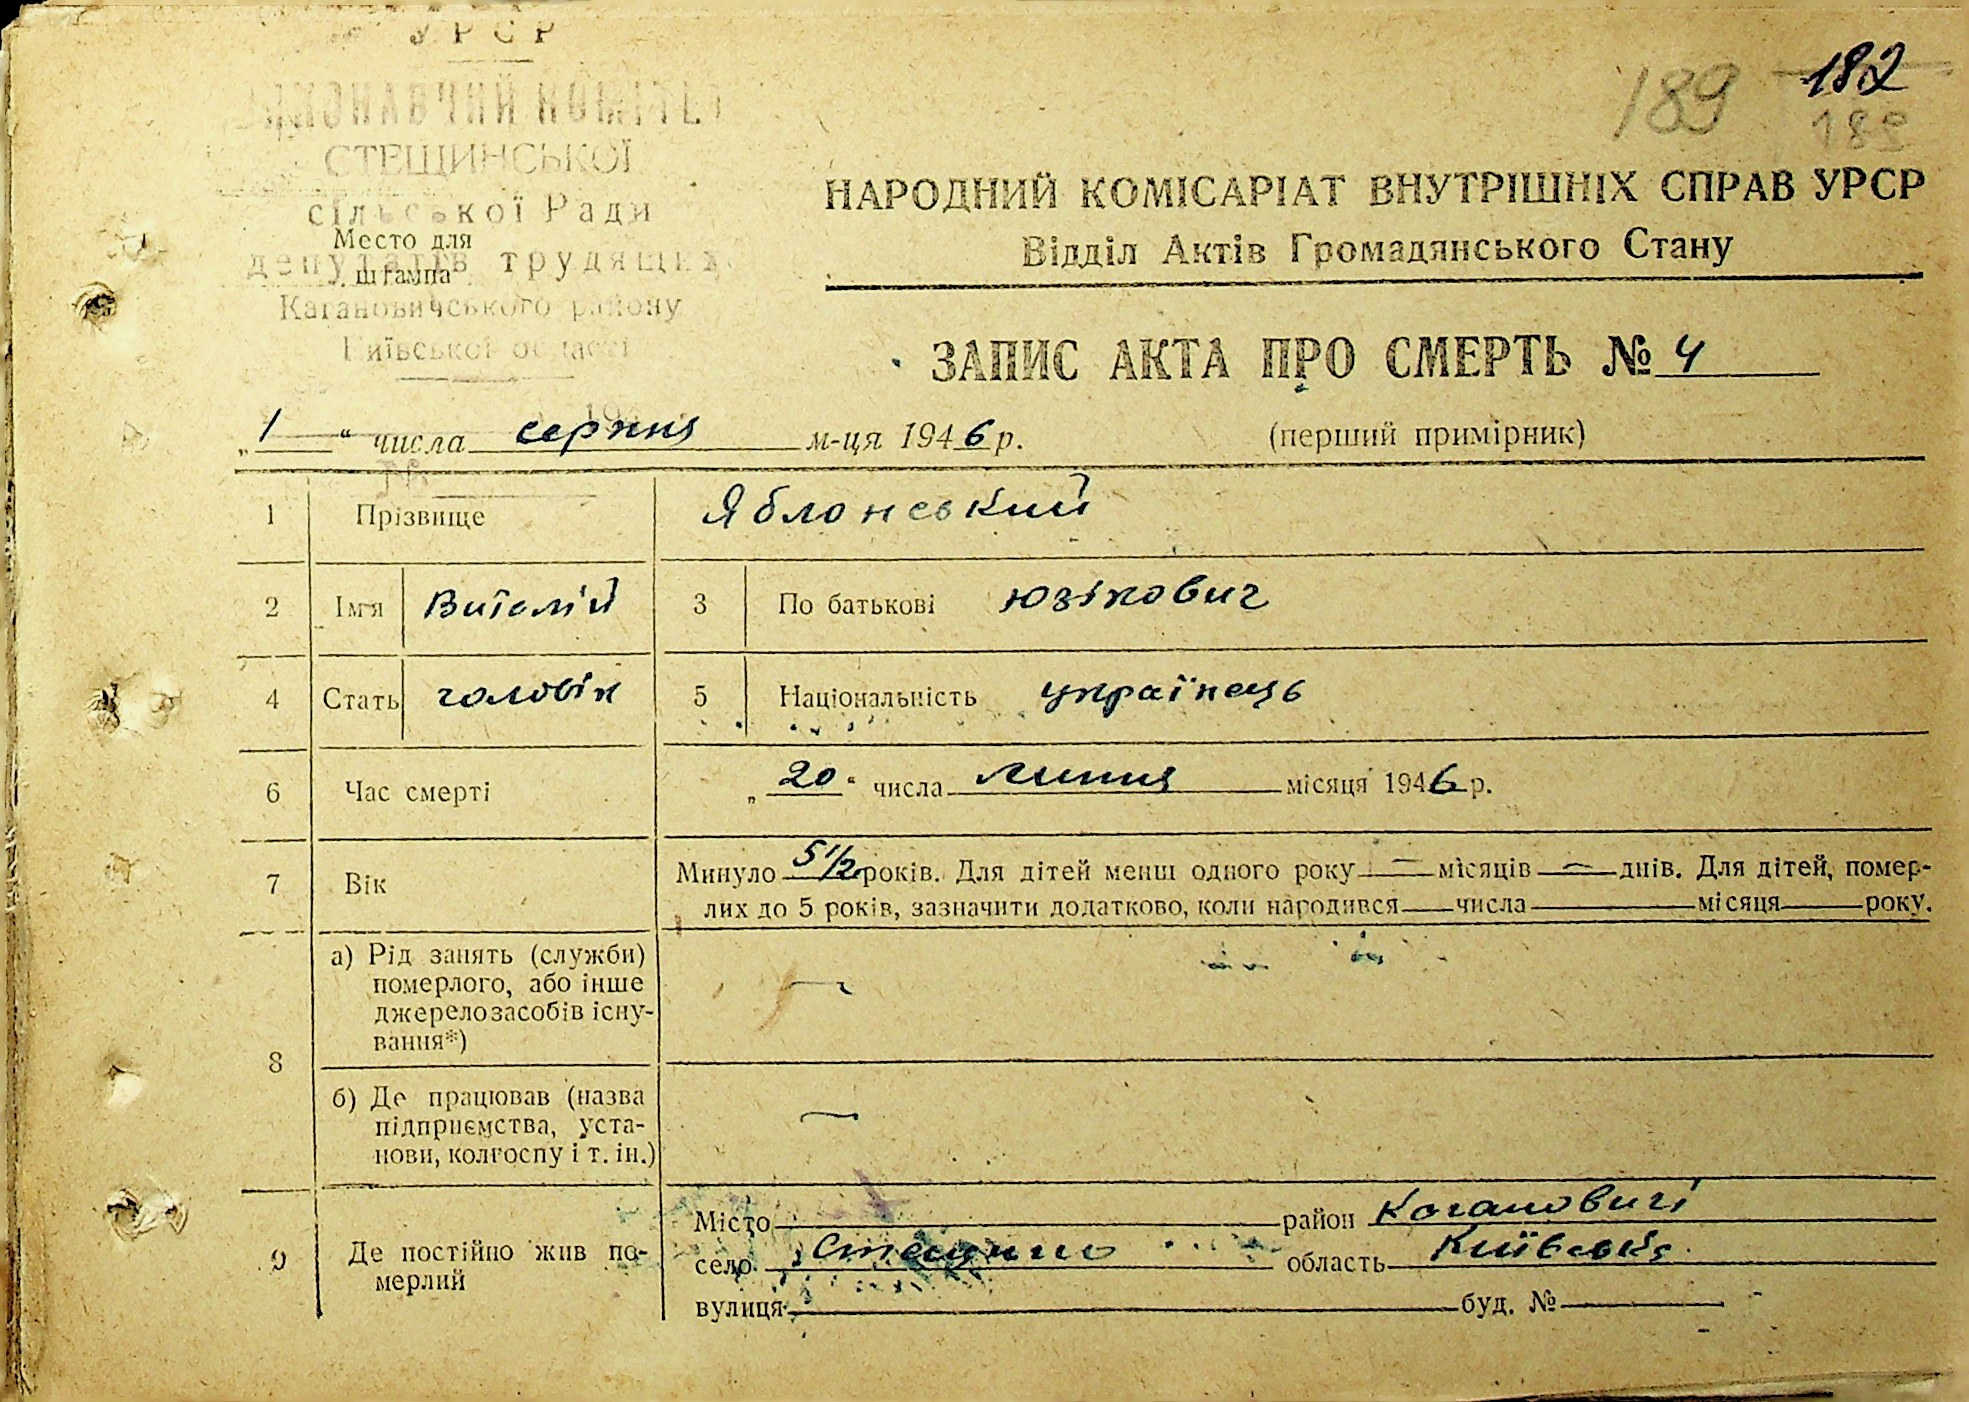 УРСР
ВИКОНАВЧИЙ КОМІТЕТ
СТЕЩИНСЬКОЇ
сільської Ради
Место для
депутатів трудящих
штампа
Кагановичського району
Київської області
189
182
189
НАРОДНИЙ КОМІСАРІАТ ВНУТРІШНІХ СПРАВ УРСР
Відділ Актів Громадянського Стану
ЗАПИС АКТА ПРО СМЕРТЬ № 4
„1“ числа серпня м-ця 1946 р. (перший примірник)
1 Прізвище Яблонський
2 Ім'я Виталій 3 По батькові Юзікович
4 Стать чоловік 5 Національність українець
6 Час смерті „20“ числа липня місяця 1946 р.
7 Вік Минуло 5 1/2 років. Для дітей менш одного року — місяців — днів. Для дітей, помер-
лих до 5 років, зазначити додатково, коли народився числа місяця року.
8 а) Рід занять (служби)
померлого, або інше
джерело засобів існу-
вання*)
—
б) Де працював (назва
підприємства, уста-
нови, колгоспу і т. ін.)
—
9 Де постійно жив по-
мерлий
Місто район Кагановичі
село Стещино область Київська
вулиця буд. №